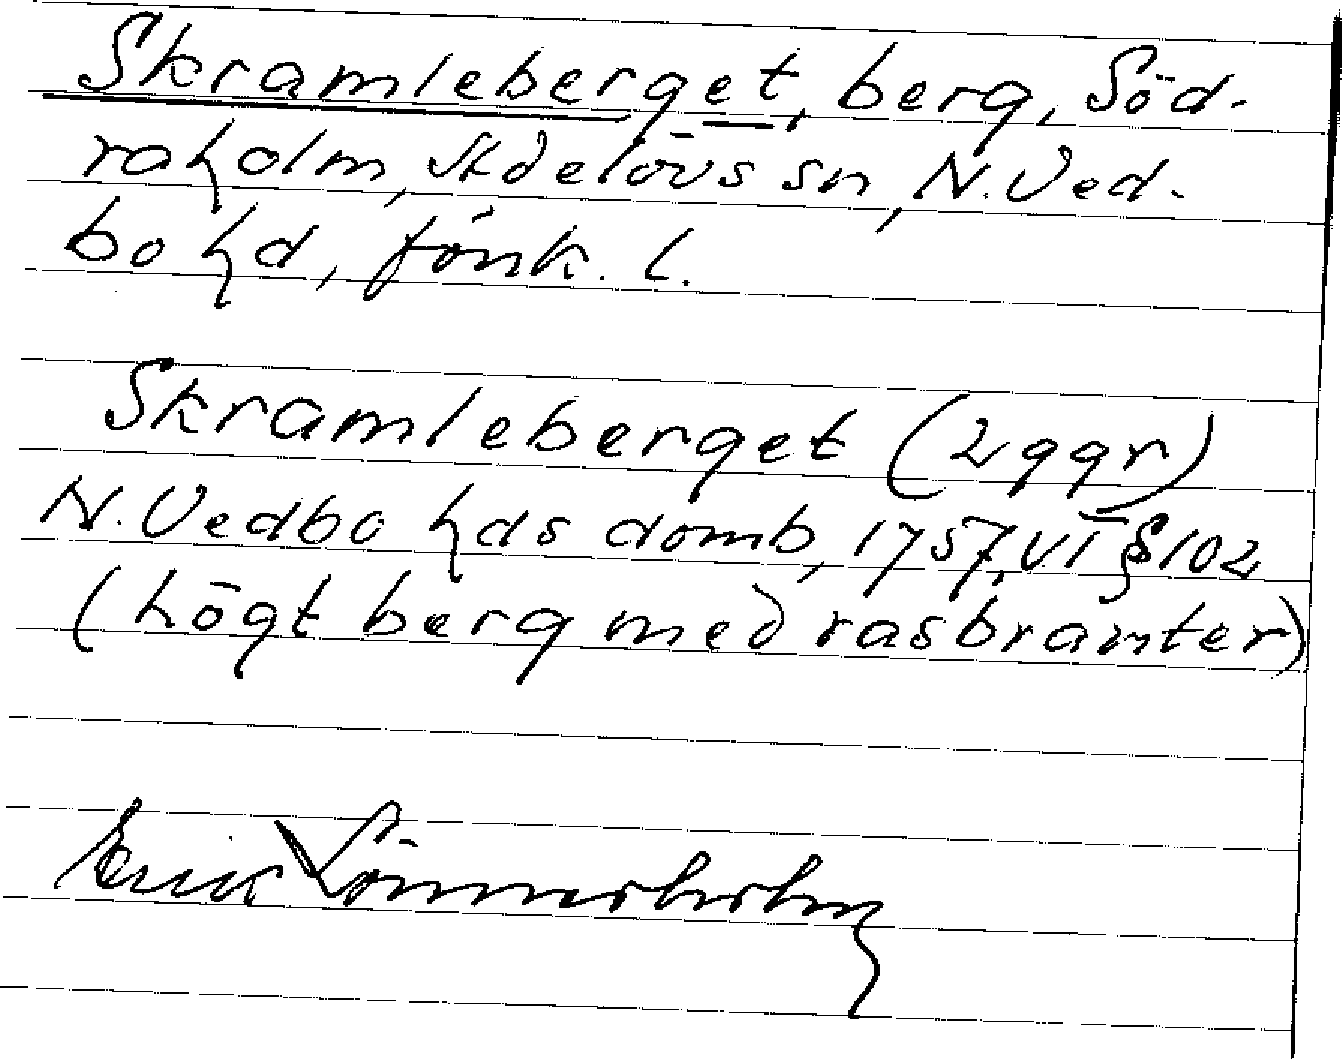 Skramleberget, berg, Söd-
raholm, Skdelövs sn, N. Ved-
bo hd, Jönk. l.
Skramleberget (2 ggr)
N. Vedbo hds domb, 1757, VI § 102
(högt berg med rasbranter)
Erik Lönnerholm